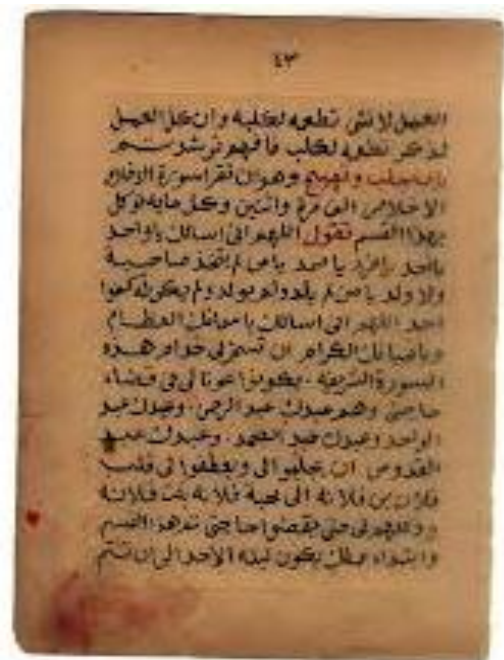 ٤٣
العمل لانثى تطعمه لكلبة وان كان العمل
لذكر تطعمه لكلب فافهم ترشد تم
باب جلب وتهييج وهو ان تقرا سورة الاخلاص
الاخلاص الف مرة واثنين وكل مايه توكل
بهذا القسم تقول اللهم انى اسالك يا واحد
يا احد يا فرد يا صمد يا من لم يتخذ صاحبة
ولا ولد يا من لم يلد ولم يولد ولم يكن له كفوا
احد اللهم انى اسالك يا العظام
الكرام ان تسخر لى خدام هذه
السورة الشريفة يكونوا عونا لى فى قضاء
حاجتى وهم عبدك عبد الرحمن وعبدك عبد
الواحد وعبدك عبد الصمد وعبدك عبد
القدوس ان يجلبوا لى ويعطفوا لى قلب
فلان بن فلانة الى محبة فلانة بنت فلانة
لى حتى يقضوا حاجتى القسم
وابتداء عملك يكون ليلة الاحد الى ان تتم